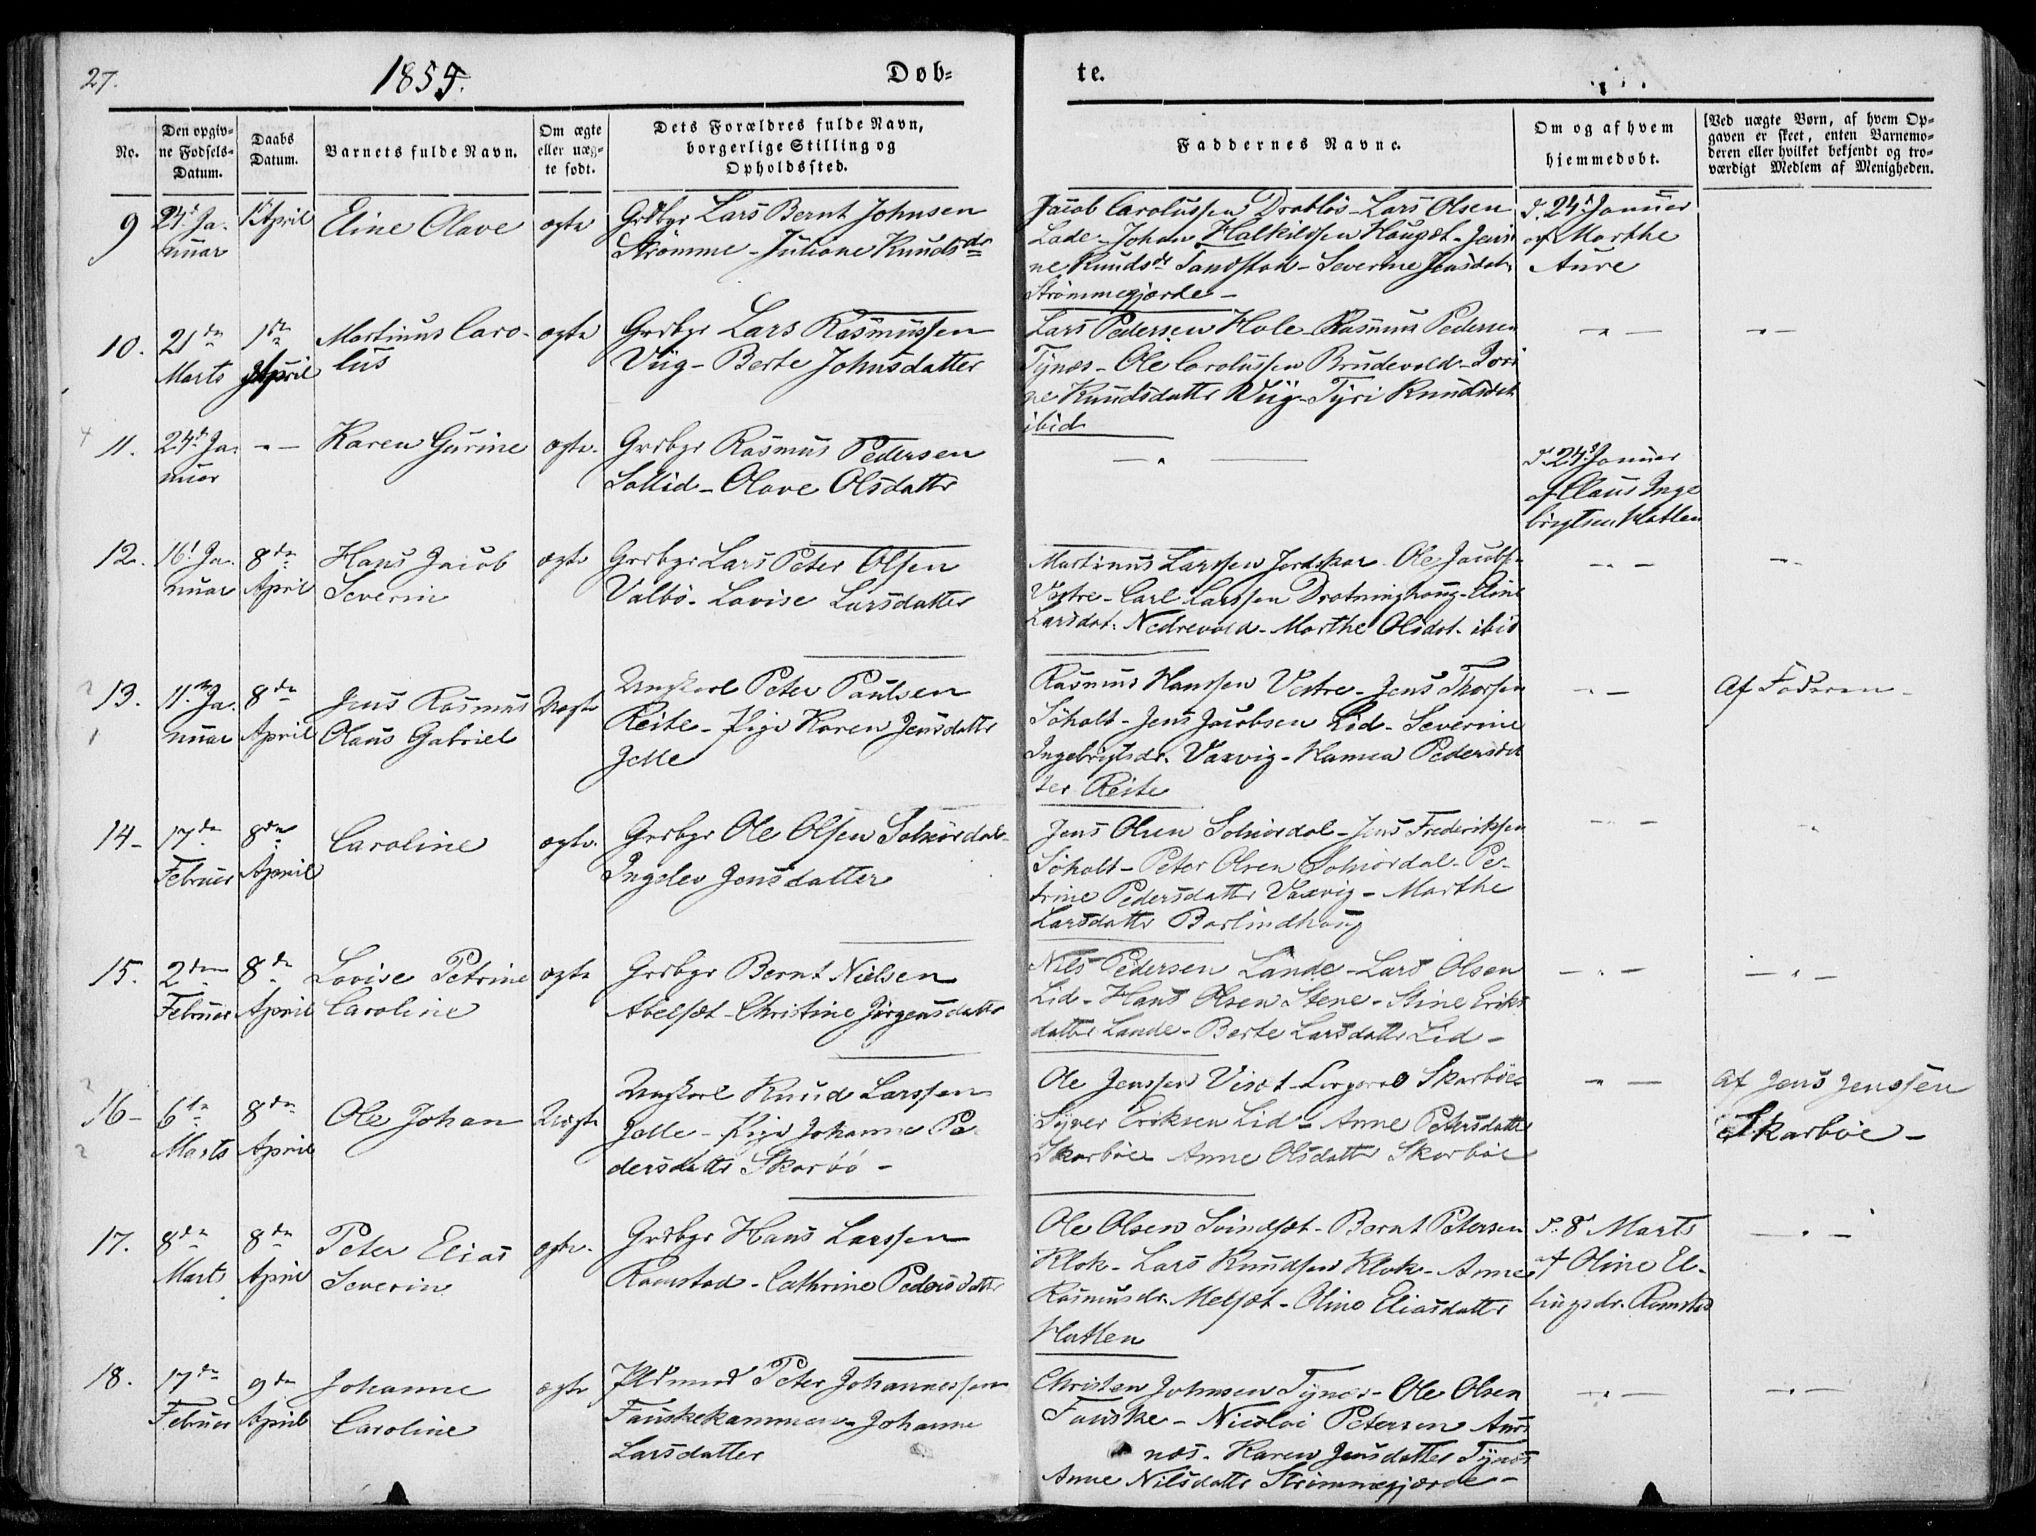 27.
1855.
Døb-
te.
No.
Den opgiv-
ne Fødsels-
Datum.
Daabs
Datum.
Barnets fulde Navn.
Om ægte
eller uæg-
te født.
Dets Forældres fulde Navn,
borgerlige Stilling og
Opholdssted.
Faddernes Navne.
Om og af hvem
hjemmedøbt.
Ved uægte Børn, af hvem Op-
gaven er skeet, enten Barnemo-
deren eller hvilket bekjendt og tro-
værdigt Medlem af Menigheden.
9
24d Ja-
nuar
1st April
Eline Olave
ægte
Grdbgr Lars Bernt Johnsen
Strømme - Juliane Knudsdr
Jacob Carolussen Drabløs - Lars Olsen
Lade - Johan Halkildsen Haugset - Jensi
ne Knudsdr Tandstad - Severine Jensdat
Strømmegjærde -
d. 24d Januar
af Marthe
Aure
10.
21de
Marts
1ste
April
Martinus Caro-
lus
ægte
Grdbgr Lars Rasmussen
Viig - Berte Johnsdatter
Lars Pedersen Hole - Rasmus Pedersen
Tynes - Ole Carolussen Brudevold - Jori
ne Knudsdattr Viig - Tyri Knudsdat
ibid
- " -
- " -
11.
24d Ja-
nuar
- " -
Karen Gurine
ægte
Grdbgr Rasmus Pedersen
Sollid - Olave Olsdattr
- " -
d. 24d Januar
af Claus Inge
brigtsen Hatlen
12.
16d Ja-
nuar
8de
April
Hans Jacob
Severin
ægte
Grdbgr Lars Peter Olsen
Valbø - Lovise Larsdatter
Martinus Larssen Jordskar - Ole Jacobsen
Vestre - Carl Larssen Drotninghoug - Eline
Larsdat. Nedrevold - Marthe Olsdat. ibid
- " -
- " -
13.
11te Ja-
nuar
8de
April
Jens Rasmus
Olaus Gabriel
Uægte
Ungkarl Peter Paulsen
Reite - Pige Karen Jensdattr
Jelle
Rasmus Hanssen Vestre - Jens Thorsen
Søholt - Jens Jacobsen Lid - Severine
Ingebrigtsdr. Vaxvig - Hanna Pedersdat
ter Reite
- " -
Af Faderen -
14 -
17de
Februar
8de
April
Caroline
ægte
Grdbgr Ole Olsen Solnørdal
Ingelev Jensdatter
Jens Olsen Solnørdal - Jens Frederiksen
Søholt - Peter Olsen Solnørdal - Pe-
trine Pedersdattr Vaxvig - Marthe
Larsdattr Barlindhoug
- " -
- " -
15.
2den
Februar
8de
April
Lovise Petrine
Caroline
ægte
Grdbgr Bernt Nielsen
Abelset - Christine Jørgensdattr
Nils Pedersen Lande - Lars Olsen
Lid - Hans Olsen Stene - Stine Eriks
datter Lande - Berte Larsdattr Lid -
- " -
- " -
16 -
6te
Marts
8de
April
Ole Johan
Uægte
Ungkarl Knud Larssen
Jelle - Pige Johanne Pe
dersdattr Skarbø -
Ole Jenssen Viset - Skarbøe
Syver Eriksen Lid - Anne Petersdattr
Skarbøe Anne Olsdattr Skarbøe
- " -
Af Jens Jenssen
Skarbøe -
17.
8de
Marts
8de
April
Peter Elias
Severin
ægte
Grdbgr Hans Larssen
Ramstad - Cathrine Pedersdatter
Ole Olsen Svindset - Bernt Petersen
Klok - Lars Knudsen Klok - Anne
Rasmusdr. Melset - Oline Eliasdattr
Hatlen
d. 8d Marts
af Oline El-
lingsdr. Ramstad
- " -
18.
17de
Februar
9de
April
Johanne
Caroline
ægte
Pldsmd Peter Johannessen
Fauskekammen - Johanne
Larsdatter
Christen Johnsen Tynes - Ole Olsen
Fauske - Nicolai Petersen Aurs
nes - Karen Jensdatter Tynes
Anne Nilsdattr Strømmegjærde -
- " -
- " -